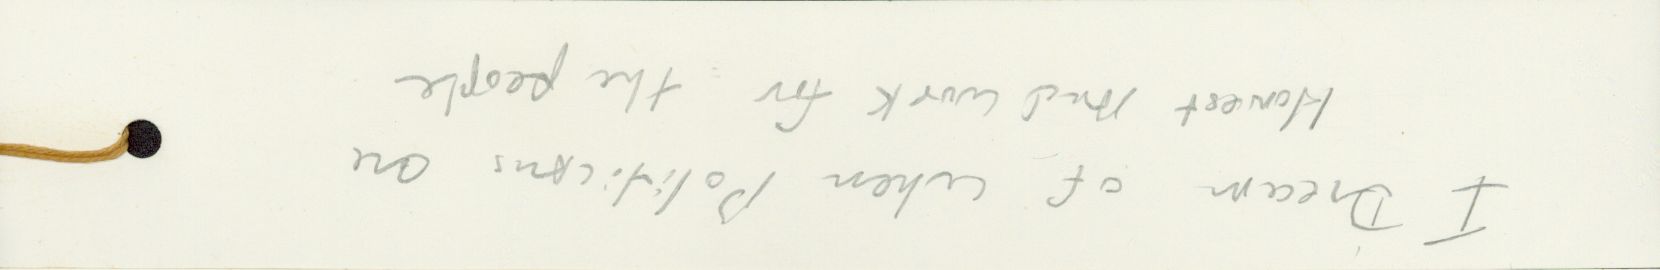 I Dream of when Politicians are
Honest and work for the people